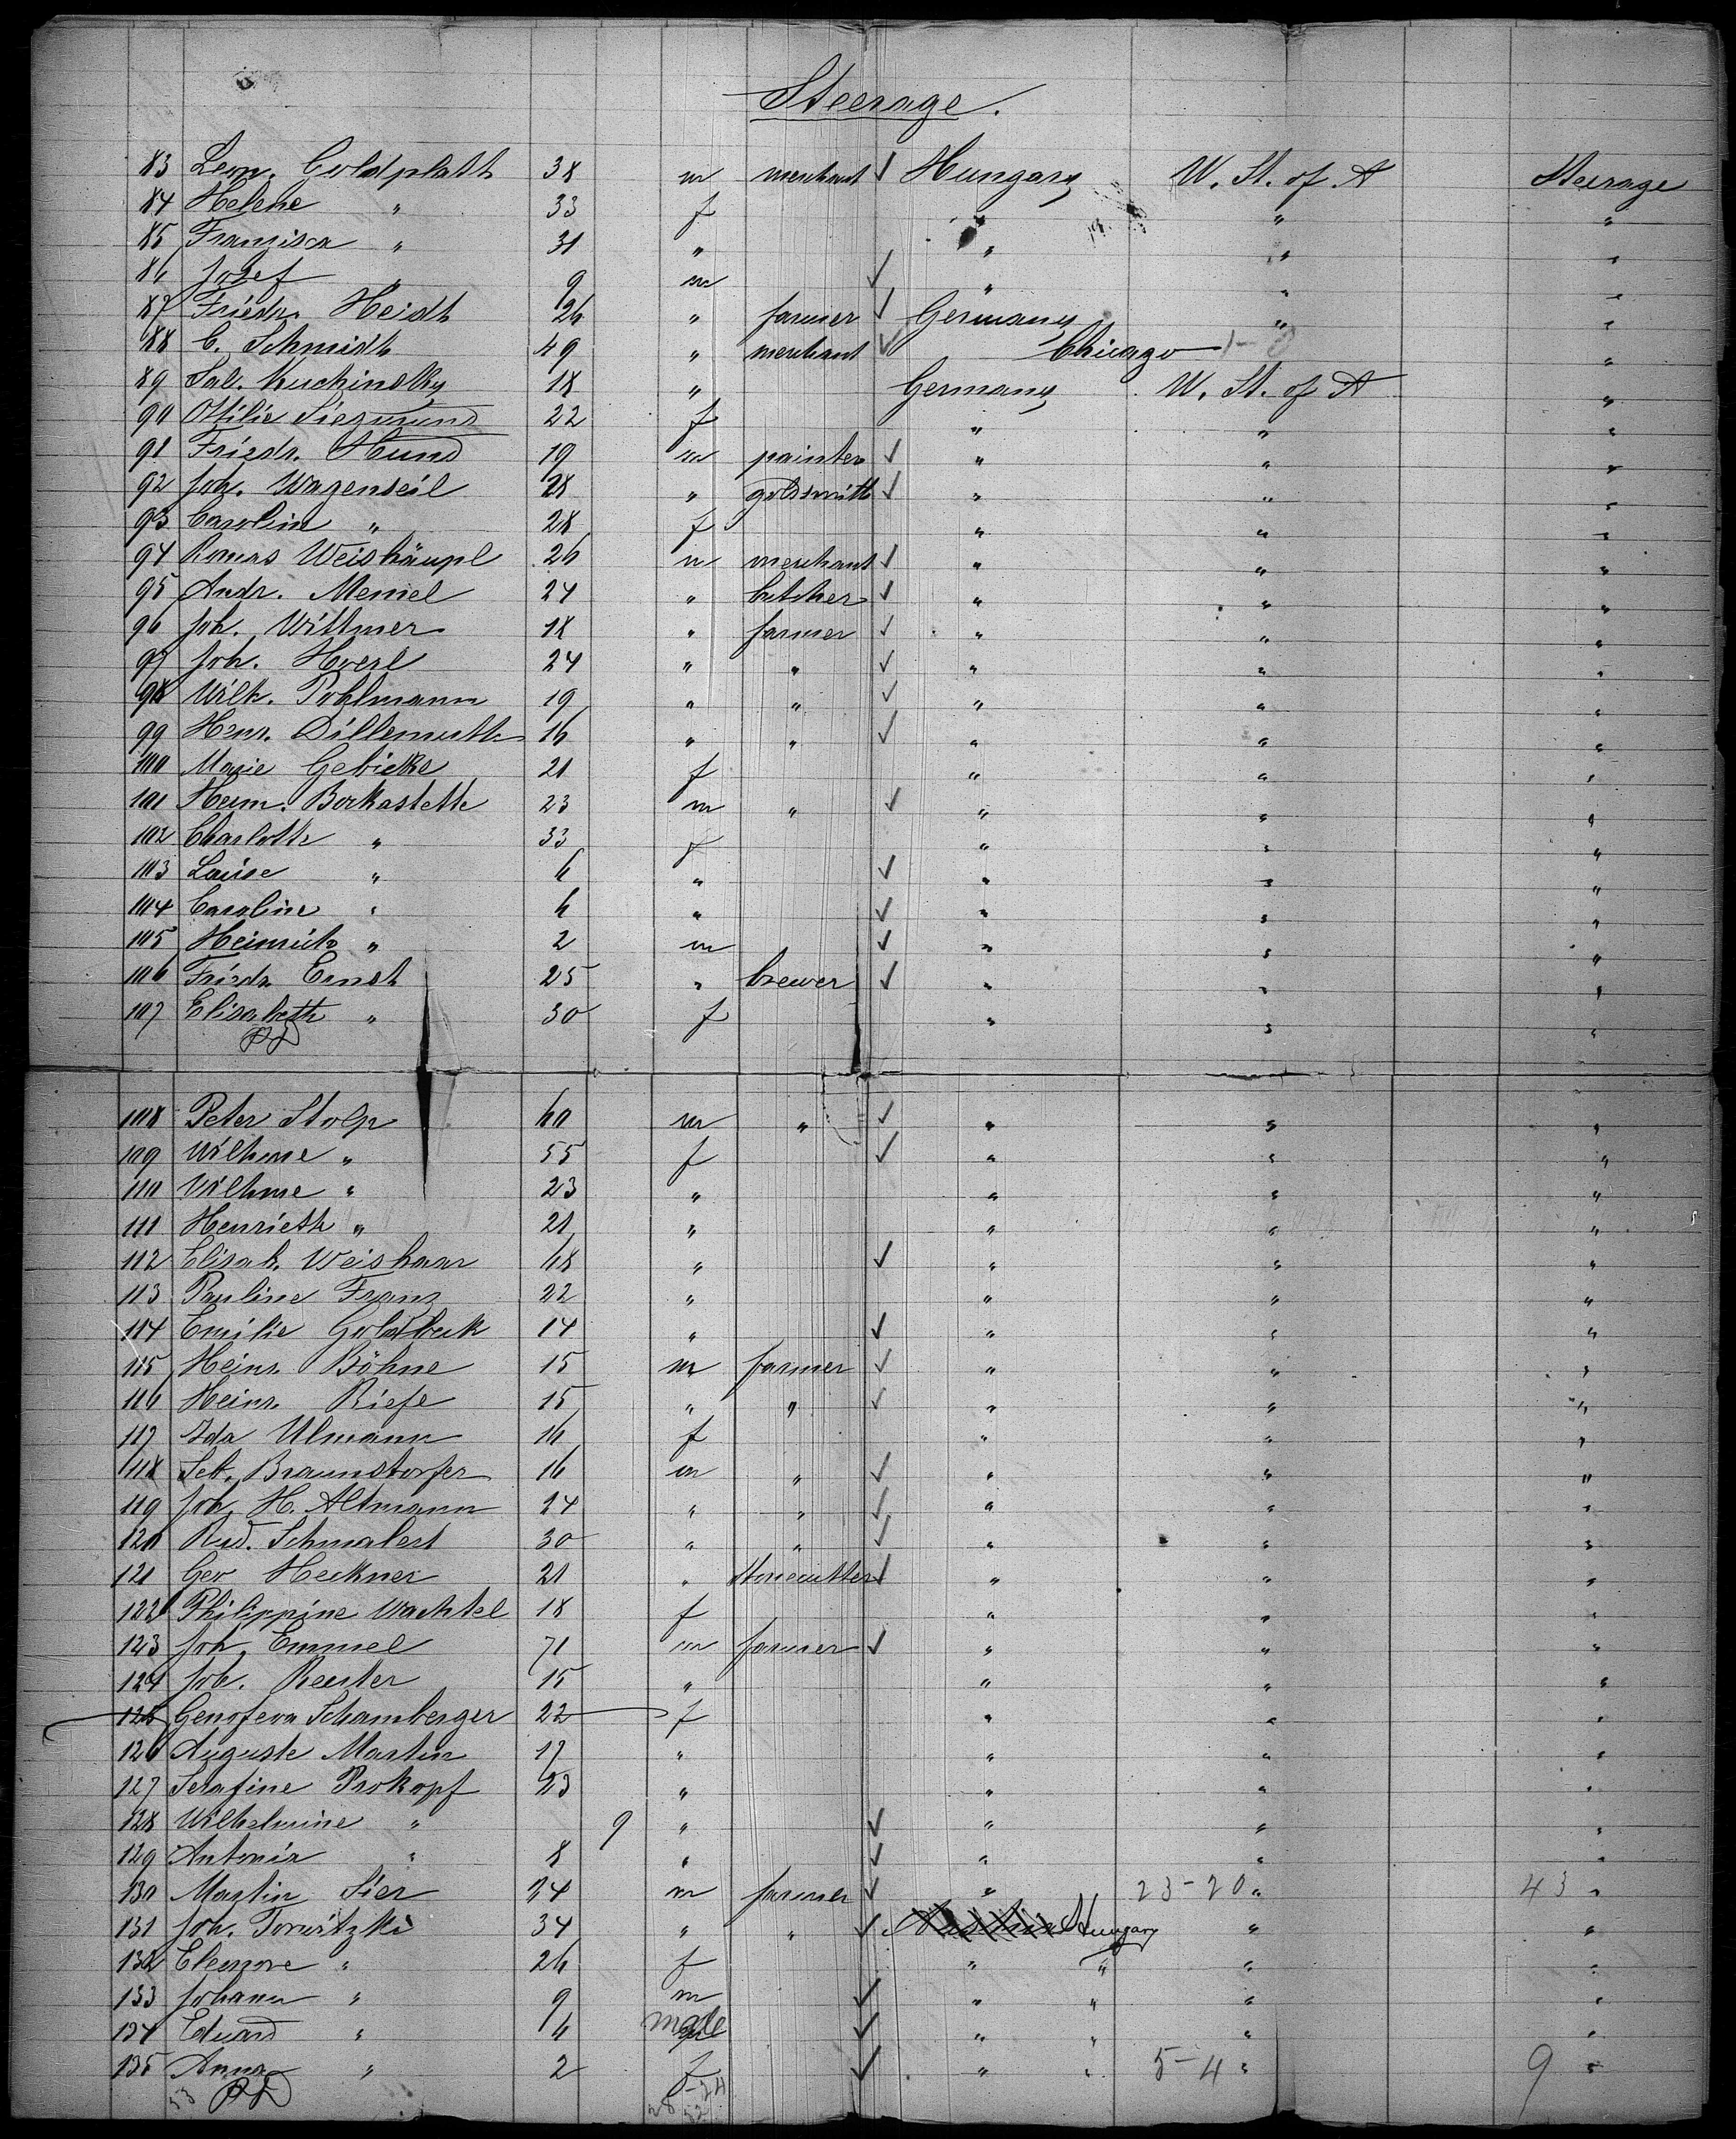 Steerage.
83 Leon. Goldplatt 38 m merchant ✓ Hungary U. St. of A Steerage
84 Helene " 33 f " " "
85 Franzisca " 31 " " " "
86 Josef " 9 m ✓ " " "
87 Friedr. Heidt 26 " farmer ✓ Germany " "
88 C. Schmidt 49 " merchant ✓ Chicago 1-0 "
89 Sal. Kuchinsky 18 " Germany U. St. of A "
90 Ottilie Siegmund 22 f " " "
91 Friedr. Hund 19 m painter ✓ " " "
92 Joh. Wagenseil 28 " goldsmith ✓ " " "
93 Carolin " 28 f " " "
94 Weishäupl 26 m merchant ✓ " " "
95 Andr. Memel 24 " butcher ✓ " " "
96 Joh. Wittmer 18 " farmer ✓ " " "
97 Joh. Hoesl 24 " " ✓ " " "
98 Wilh. Pohlmann 19 " " ✓ " " "
99 Henr. Dillemuth 16 " " ✓ " " "
100 Marie Gebicke 21 f " " "
101 Herm. Borkastette 23 m " ✓ " " "
102 Charlotte " 33 f " " "
103 Louise " 6 " ✓ " " "
104 Caroline " 6 " ✓ " " "
105 Heinrich " 2 m ✓ " " "
106 Friedr. Ernst 25 " brewer ✓ " " "
107 Elisabeth " 30 f " " "
108 Peter Stolp 60 m " ✓ " " "
109 Wilhme " 55 f ✓ " " "
110 Wilhme " 23 " " " "
111 Henrieth " 21 " " " "
112 Elisab. Weishaar 68 " ✓ " " "
113 Pauline Franz 22 " " " "
114 Emilie Goldbeck 14 " ✓ " " "
115 Heinr. Böhne 15 m farmer ✓ " " "
116 Heinr. Riefe 15 " " ✓ " " "
117 Ida Ulmann 16 f " " "
118 Seb. Braunstorfer 16 m " ✓ " " "
119 Joh. H. Altmann 24 " " ✓ " " "
120 Rud. Schmalest 30 " " ✓ " " "
121 Geo Heckner 21 " stonecutter ✓ " " "
122 Philippine Wachtel 18 f " " "
123 Joh. Emmel 71 m farmer ✓ " " "
124 Joh. Reester 15 " " " "
125 Genofeva Schamberger 22 f " " "
126 Auguste Martin 17 " " " "
127 Serafine Prokopf 23 " " " "
128 Wilhelmine " 9 " ✓ " " "
129 Antonia " 8 " ✓ " " "
130 Martin Sier 24 m farmer ✓ " 23-20 " 43 "
131 Joh. Torwitzki 34 " " ✓ Hungary " "
132 Eleonore " 26 f " " " "
133 Johann " 9 m ✓ " " " "
134 Eduard " 6 male ✓ " " " "
135 Anna " 2 f ✓ " " 5-4 " 9 "
53 28-24
52